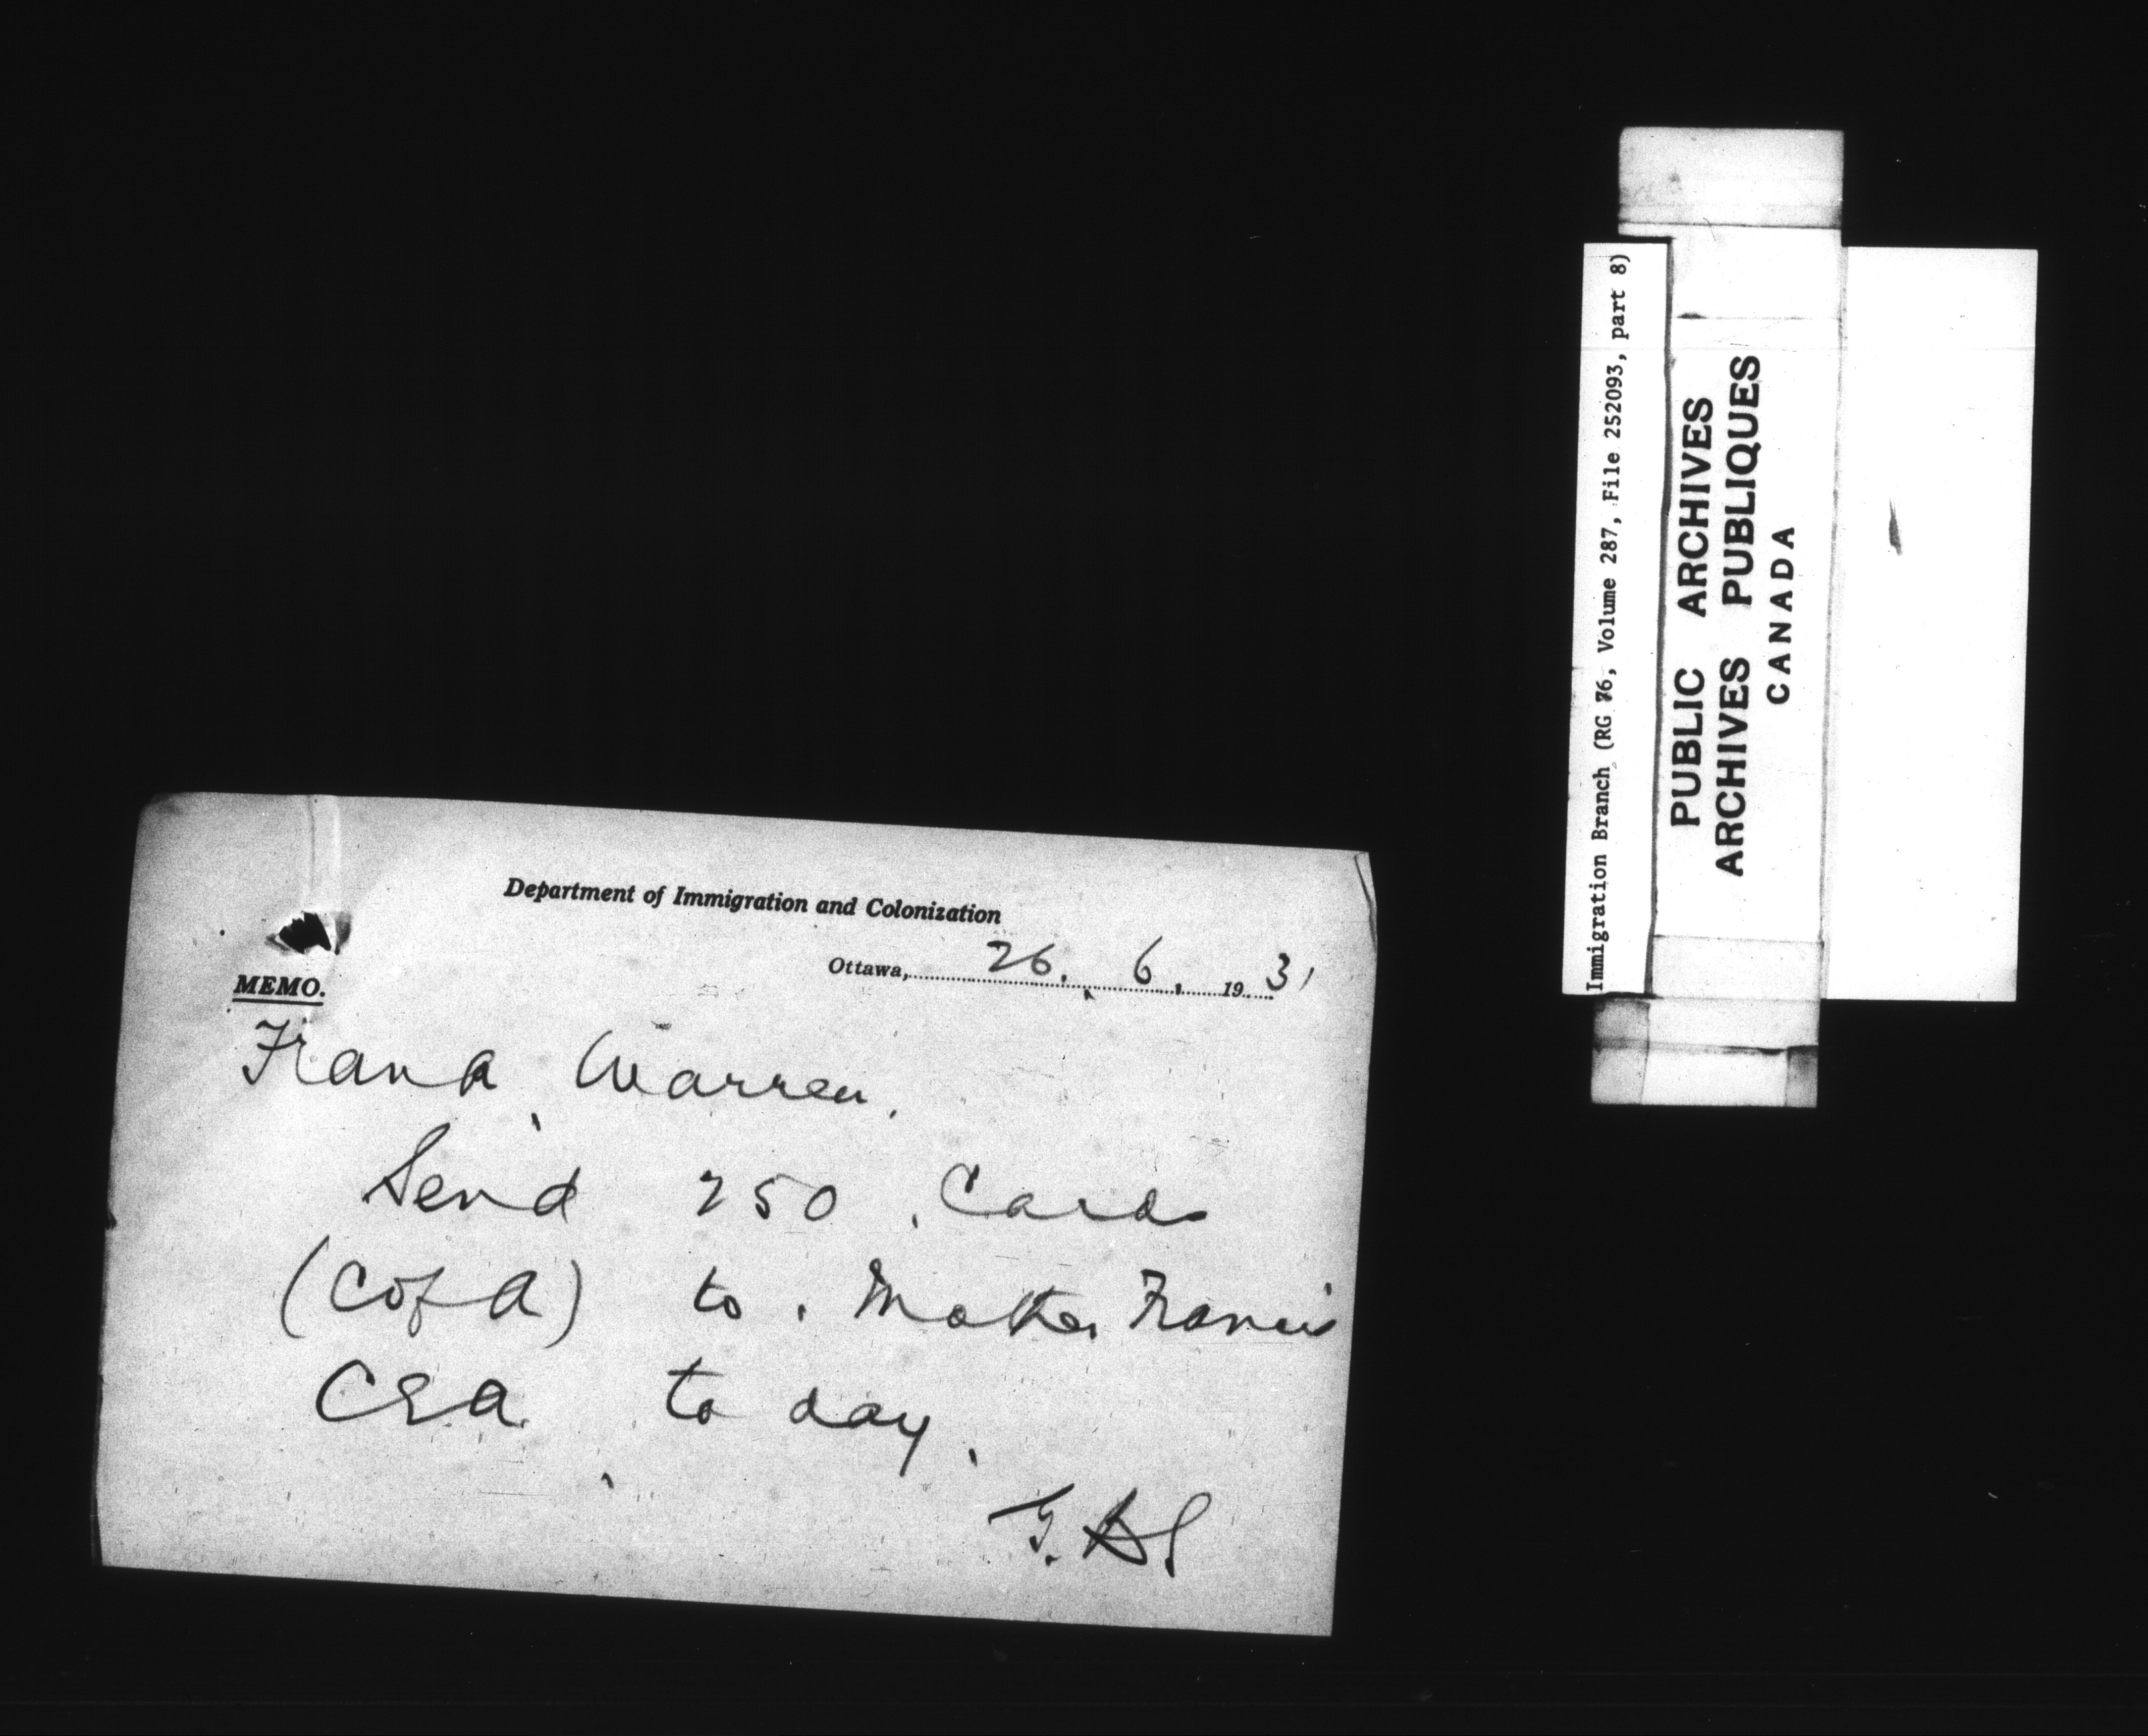 Department of Immigration and Colonization
Ottawa, 26. 6. 1931
MEMO.
Frank Warren.
Send 250 Cards
(C of A) to Mother Francis
CEA to day.
Immigration Branch (RG 76, Volume 287, File 252093, part 8)
PUBLIC ARCHIVES
ARCHIVES PUBLIQUES
CANADA